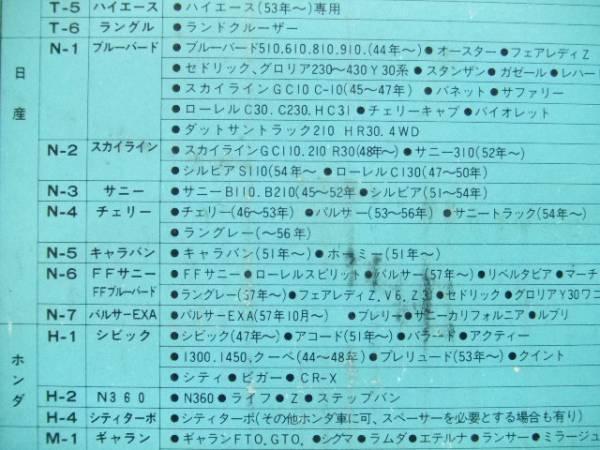 T-5 ハイエース ●ハイエース(53年〜)専用
T-6 ラングル ●ランドクルーザー
日産
N-1 ブルーバード ●ブルーバード510.610.810.910.(44年〜)●オースター●フェアレディZ
●セドリック、グロリア230〜430Y30系●スタンザン●ガゼール●レハー
●スカイラインGC10 C-10(45〜47年)●バネット●サファリー
●ローレルC30.C230.HC31●チェリーキャブ●バイオレット
●ダットサントラック210 HR30.4WD
N-2 スカイライン ●スカイラインGC110.210 R30(48年〜)●サニー310(52年〜)
●シルビアS110(54年〜 ●ローレルC130(47〜50年)
N-3 サニー ●サニーB110.B210(45〜52年●シルビア(51〜54年)
N-4 チェリー ●チェリー(46〜53年) ●パルサー(53〜56年) ●サニートラック(54年〜)
●ラングレー(〜56年)
N-5 キャラバン ●キャラバン(51年〜)●ホーミー(51年〜)
N-6 FFサニー ●FFサニー●ローレルスピリット●パルサー(57年〜)●リベルタビア●マーチ
FFブルーバード ●ラングレー(57年〜)●フェアレディZ,V6,Z31●セドリック●グロリアY30ワゴ
N-7 パルサーEXA ●パルサーEXA(57年10月〜) ●プレリー●サニーカリフォルニア●ルプリ
ホンダ
H-1 シビック ●シビック(47年〜)●アコード(51年〜)●バラード●アクティー
●1300.1450.クーペ(44〜48年)●プレリュード(53年〜)●クイント
●シティ●ビガー●CR-X
H-2 N360 ●N360●ライフ●Z●ステップバン
H-4 シティターボ ●シティターボ(その他ホンダ車に可、スペーサーを必要とする場合も有り)
M-1 ギャラン ●ギャランFTO.GTO.●シグマ●ラムダ●エテルナ●ランサー●ミラージュ